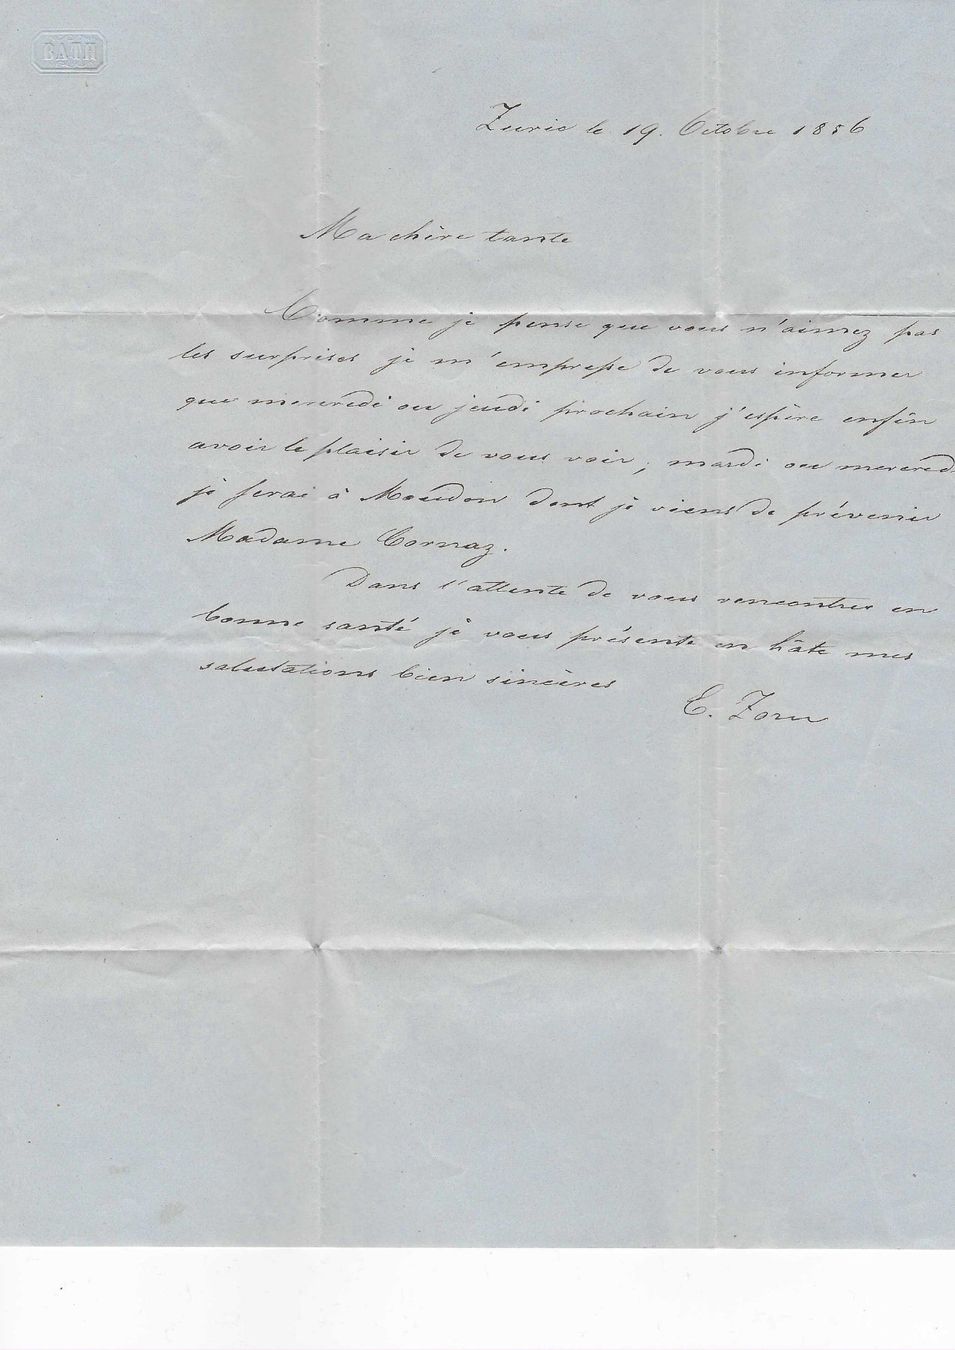 BATH
Zuric le 19. Octobre 1856
Ma chère tante
Comme je pense que vous n'aimez pas
les surprises je m'empresse de vous informer
que mercredi ou jeudi prochain j'espère enfin
avoir le plaisir de vous voir; mardi ou mercredi
je serai à Moudon dont je viens de prévenir
Madame Cornaz.
Dans l'attente de vous rencontrer en
bonne santé je vous présente en hâte mes
salutations bien sincères
E. Zorn